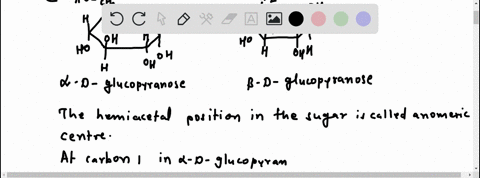 H
HO
OH
H
OH
H
OH
HO
OH
α-D- glucopyranose
β-D- glucopyranose
The hemiacetal position in the sugar is called anomeric
centre.
At carbon 1 in α-D-glucopyran